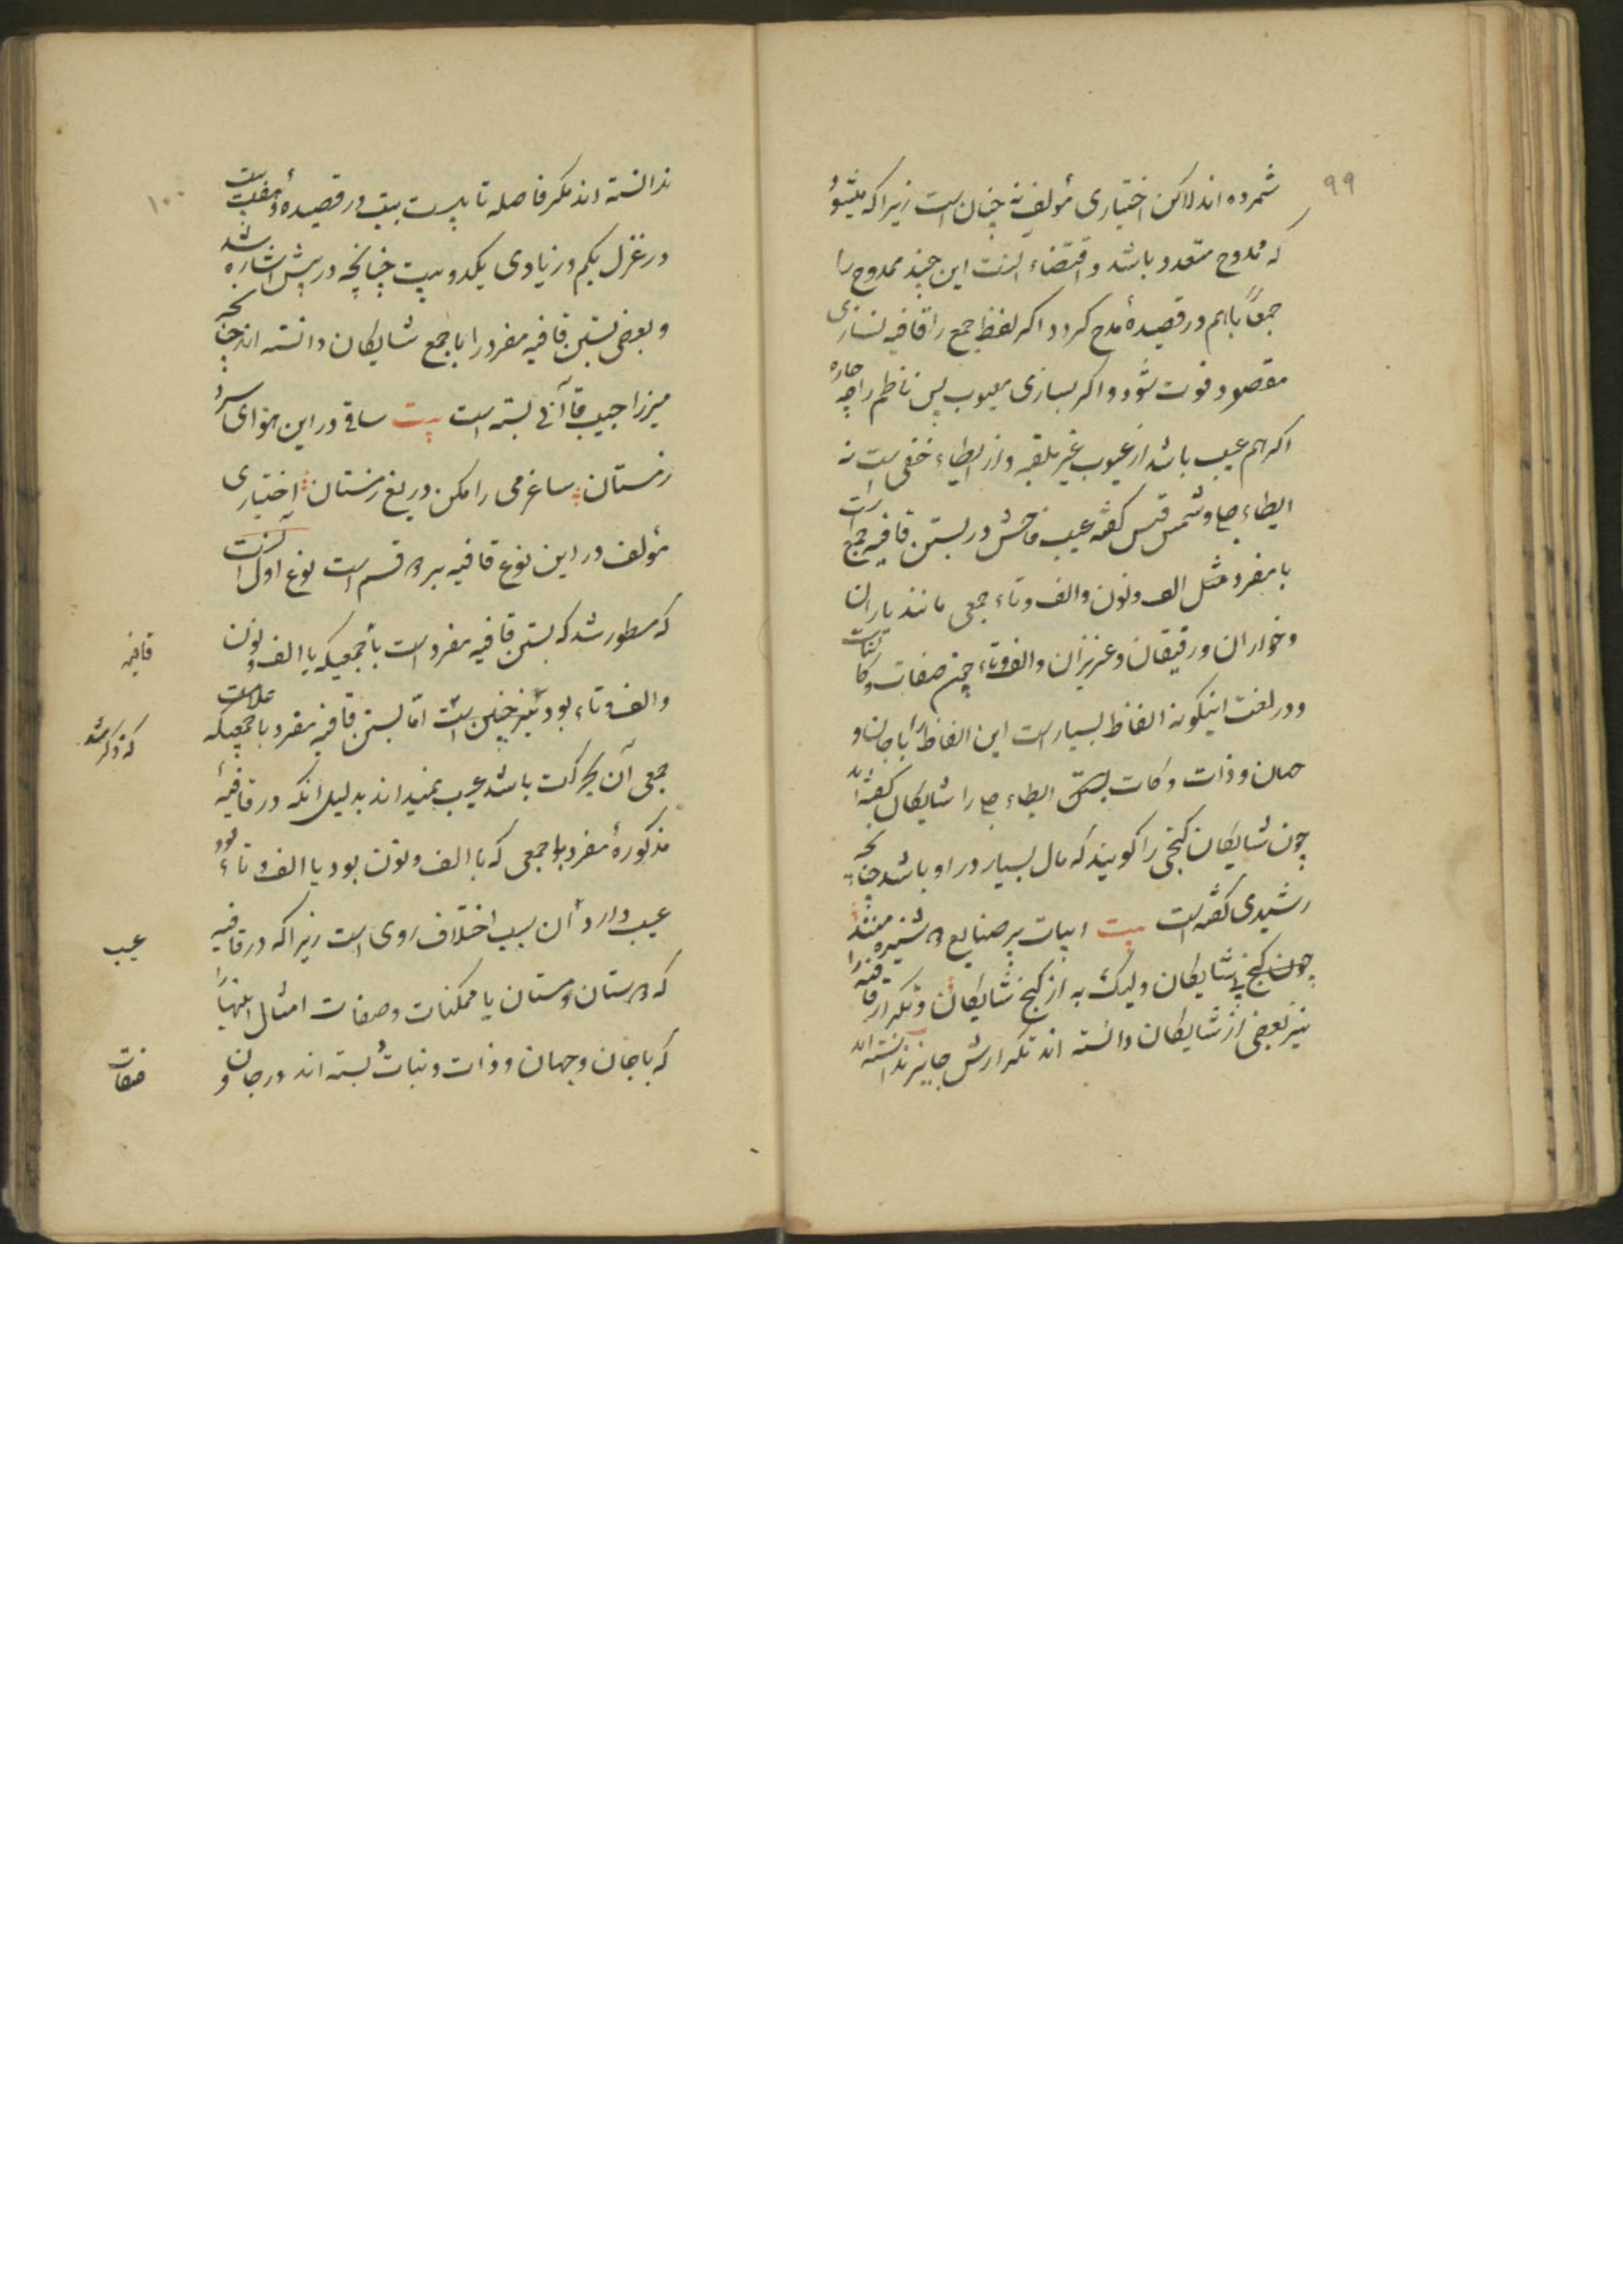 ۹۹
شمرده اند لاکن اختیاری مؤلف نه چنان است زیرا که میشود
که ممدوح متعدد باشد و اقتضاء این چند ممدوح را
جمعاً باهم در قصیدهٔ مدح کرد و اکر لفظ جمع را قافیه نسازی
مقصود فوت شود و اکر بسازی معیوب پس ناظم را چه چاره
اکر هم عیب باشد از عیوب غیر ملقبه و از ایطاء خفی است نه
ایطاء جلی و شمس قیس کفته عیب فاحش در بستن قافیه جمع است
با مفرد مثل الف و نون و الف و تاء جمعی مانند یاران
و خواران و رفیقان و عزیزان و الف و تاء چون صفات و کائنات
و در لغت اینکونه الفاظ بسیار است این الفاظ را با جان و
جهان و ذات و کات بستن ایطاء جلی را شایکان کفته اند
چون شایکان کنجی را کویند که مال بسیار در او باشد چنانچه
رشیدی کفته است بیت ابیات پر صنایع
چون کنج شایکان ولیک به از کنج شایکان و تکرار قافیه را
نیز بعضی از شایکان دانسته اند تکرارش جایز ندانسته اند
۱۰۰
ندانسته اند مکر فاصله تا بیست بیت در قصیده و هفت بیت
در غزل یکم و زیادی یکدو بیت چنانچه در پیش اشاره شد
و بعضی بستن قافیه مفرد را با جمع شایکان دانسته اند چنانچه
میرزا حبیب قاآنی بسته است بیت ساقی در این هوای سرد
زمستان ساغر می را مکن دریغ زمستان اختیاری
مؤلف در این نوع قافیه بر ۲ قسم است نوع اول آنست
که مسطور شد که بستن قافیه مفرد است با جمعیکه با الف و نون
والف و تاء بود نیز چنین است امّا بستن قافیه مفرد با جمعیکه علامت
جمعی آن بحرکت باشد عیب نمیداند بدلیل انکه در قافیهٔ
مذکورهٔ مفرد با جمعی که با الف و نون بود یا الف و تاء بود
عیب دارد آن بسبب اختلاف روی است زیرا که در قافیه
که ۲ ستان و مستان یا ممکنات و صفات امثال اینها را
که با جان و جهان و ذات و نبات بسته اند در جان و
قافیه
که ذکر شد
عیب
صفات